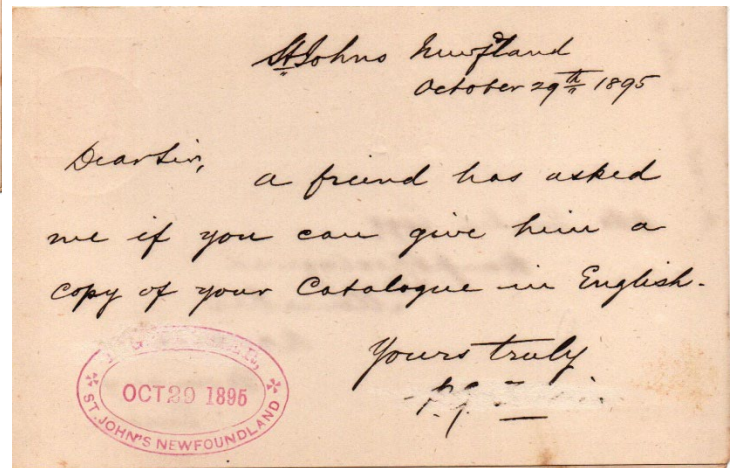 St Johns Newfland
October 29th 1895
Dear Sir,
a friend has asked
me if you can give him a
copy of your Catalogue in English.
Yours truly
OCT 29 1895
ST. JOHN'S NEWFOUNDLAND